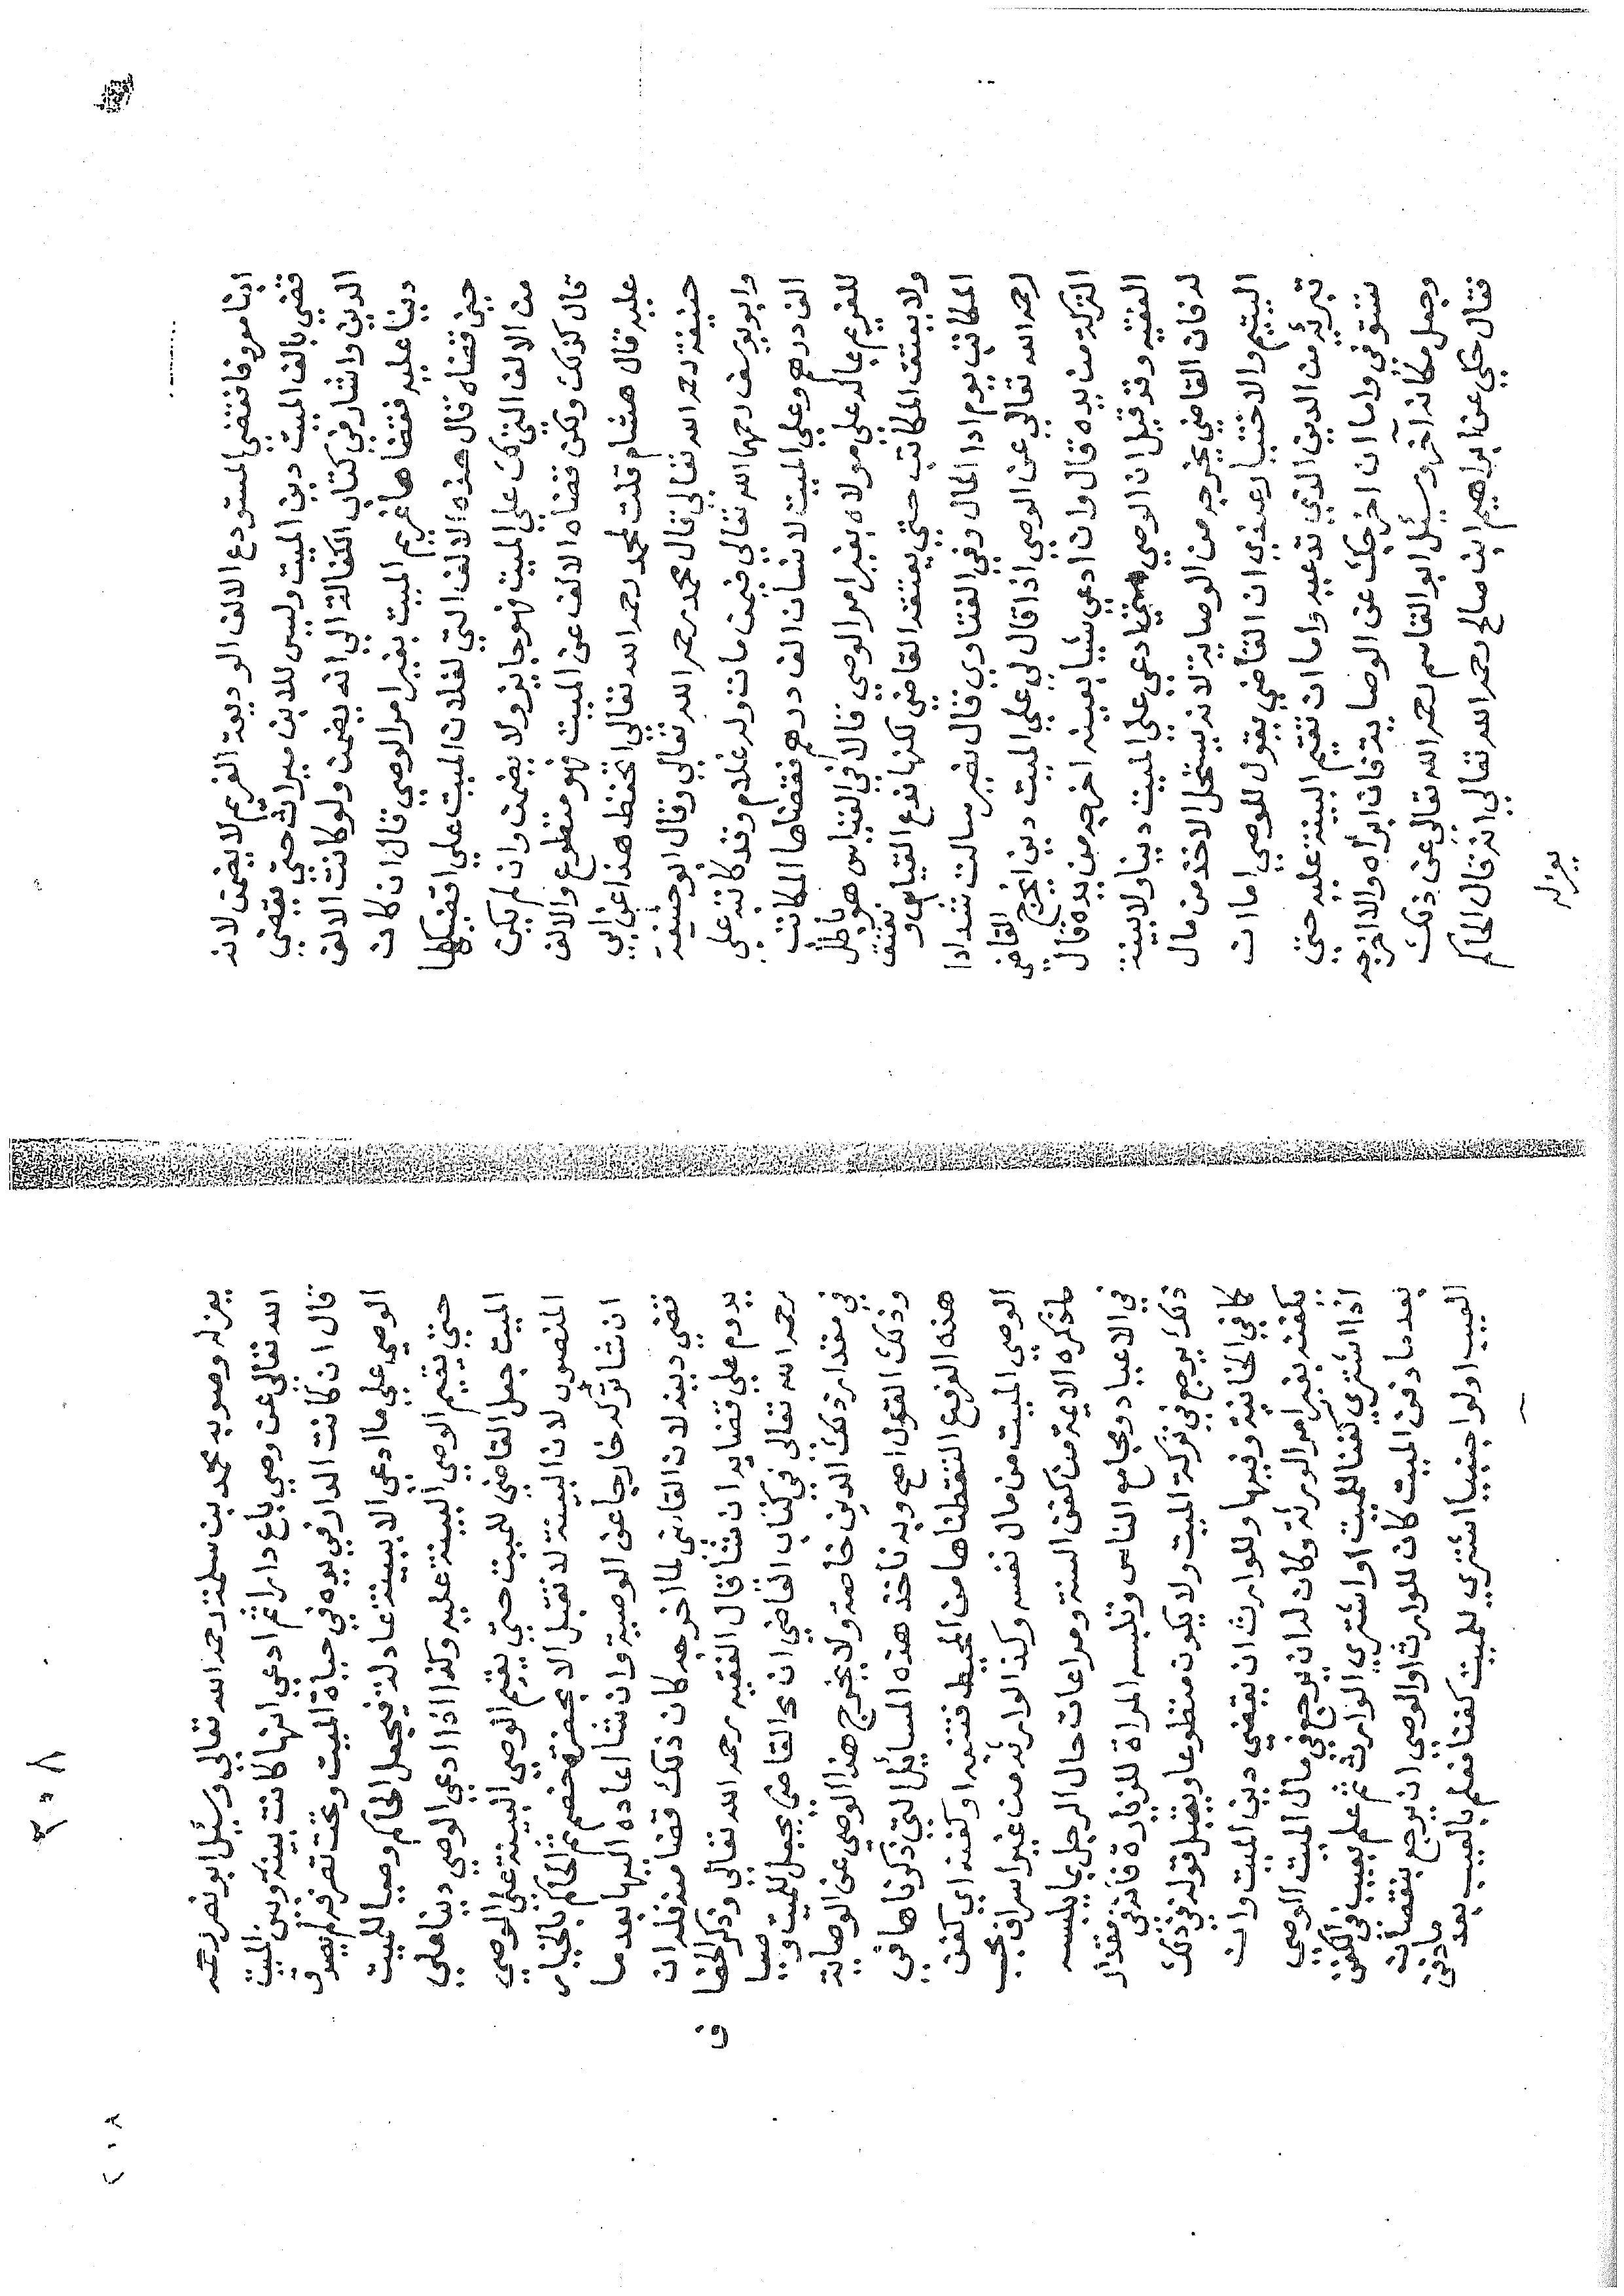 اذنا معروفا فقضي المستودع الالف الوديعة الغريم لا يضمن لانه
قضي بالف الميت دين الميت وليس للابن ميراث حتي يقضي
الدين واشار في كتاب الكفالة الي انه يضمن ولو كانت الالف
دينا عليه فقضاها غريم الميت بغير امر الوصي قال ان كان
حين قضاه قال هذه الالف التي لفلان الميت علي اقضيكها
من الالف التي لك علي الميت فهو جايز ولا يضمن وان لم يكن
قال كذلك ولكن قضاه الالف عن الميت فهو متطوع والالف
عليه قال هشام قلت لمحمد رحمه الله تعالي اتحفظ هذا عن ابي
حنيفة رحمه الله تعالي قال محمد رحمه الله تعالي وقال ابو حنيفة
وابو يوسف رحمهما الله تعالي فيمن مات وله غلام وقد كاتبه علي
الف درهم وعلي الميت لانسان الف درهم فقضاها المكاتب
للغريم بماله علي مولاه بغير امر الوصي قالا في القياس هو باطل
ولا يعتق المكاتب حتي يعتقه القاضي لكنها ندع القياس و نعتق
المكاتب يوم ادا المال وفي الفتاوي قال نصير سالت شدادا
رحمه الله تعالي عن الوصي اذا قال لي علي الميت دين ايخرج القاضي
التركة من يده قال وان ادعي شيئا بعينه اخرجه من يده قال
الفقيه وقد قيل ان الوصي متي ادعي علي الميت دينا ولا بينة
له فان القاضي يخرجه من الوصاية لانه يستحل الاخذ من مال
اليتيم والاختيار عندي ان القاضي يقول للوصي اما ان
تبرئه من الدين الذي تدعيه واما ان تقيم البينة عليه حتي
تستوفي واما ان اخرجك عن الوصاية فان ابراه والا اخرجه
وجعل مكانه آخر وسئل ابو القاسم رحمه الله تعالي عن ذلك
فقال حكي عن ابراهيم ابن صالح رحمه الله تعالي انه قال الحاكم
يعزله
٢٠٨
يعزله وصوبه محمد بن سلمة رحمه الله تعالي وسئل ابو نصر رحمه
الله تعالي عن وصي باع دارا ثم ادعي انها كانت بينه وبين الميت
قال ان كانت الدار في يده في حياة الميت وتحت تصرفه لم يصدق
الوصي علي ما ادعي الا ببينة عادلة فيجعل الحاكم وصيا للميت
حتي يقيم الوصي البينة عليه وكذا اذا ادعي الوصي دينا علي
الميت جعل القاضي للميت حتي يقيم الوصي البينة علي الوصي
المنصوب لان البينة لا تقبل الا بحضرة خصم ثم الحاكم بالخيار
ان شا تركه خارجا عن الوصية وان شا اعاده اليها بعد ما
قضي دينه لان القاضي لما اخرجه كان ذلك قضا منه فله ان
يدوم علي قضايه ان شا قال الفقيه رحمه الله تعالي وذكر الخصا
ف
رحمه الله تعالي في كتاب القاضي ان القاضي يجعل للميت وصيا
في مقدار ذلك الدين خاصة ولا يخرج هذا الوصي عن الوصاية
وذلك القول اصح وبه ناخذ هذه المسائل التي ذكرناها في
هذه الفرع التقطناها من المحيط فتنبه او كفنه اي كفن
الوصي الميت من مال نفسه وكذا الوارث من غير اسراف يجب
لما ذكره الايمة من كفن السنة ومراعات حال الرجل بما يلبسه
في الاعياد ومجامع الناس وتلبسه المراة للزيارة فانه في مقدار
ذلك يرجع في تركة الميت ولا يكون متطوعا ويقبل قوله في ذلك
كما في الخانية وفيها وللوارث ان يقضي دين الميت وان
يكفنه بغير امر الورثة وكان له ان يرجع في مال الميت الوصي
اذا اشتري كفنا للميت او اشتري الوارث ثم علم بعيب في الكفن
بعد ما دفن الميت كان للوارث او الوصي ان يرجع بنقصان
العيب ولو اجنبيا اشتري للميت كفنا فعلم بالعيب بعد ما دفن
٢٠٨